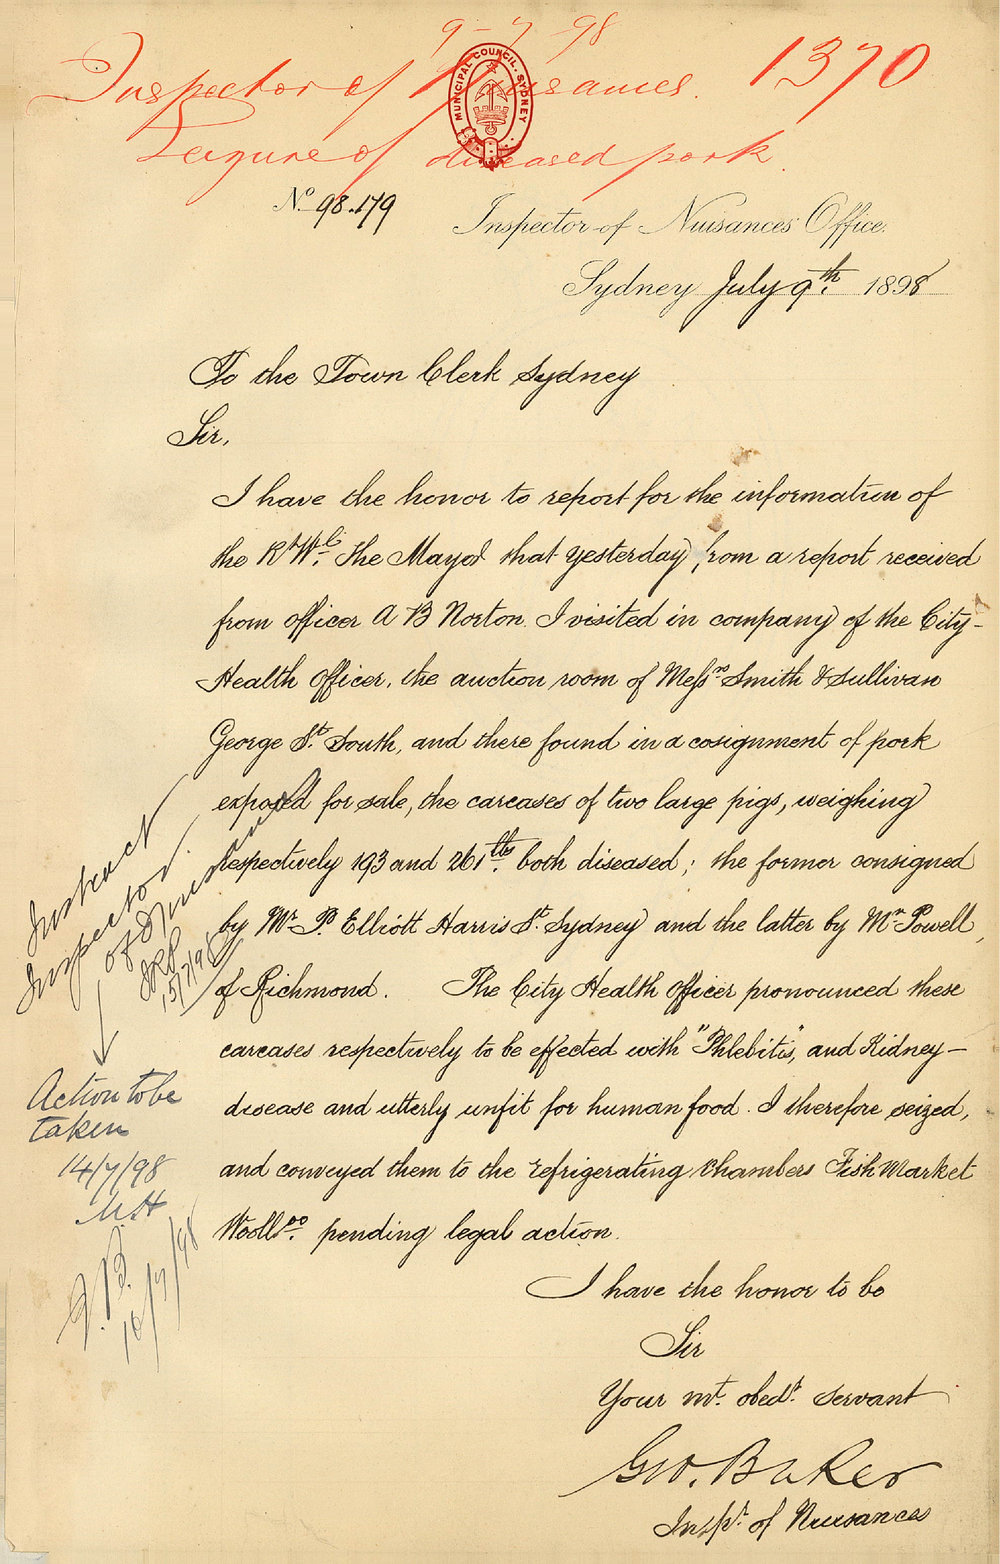 9-7-98
Inspector of Nuisances. 1370
MUNICIPAL COUNCIL. SYDNEY
Seizure of diseased pork
No. 98.179
Inspector of Nuisances' Office.
Sydney July 9th. 1898
To the Town Clerk Sydney
Sir,
I have the honor to report for the information of
the Rt. Wl. the Mayor that yesterday, from a report received
from officer A B Norton. I visited in company of the City-
Health Officer, the auction room of Messrs Smith & Sullivan
George St. South, and there found in a cosignment of pork
exposed for sale, the carcases of two large pigs, weighing
respectively 193 and 261 lbs. both diseased; the former consigned
by Mr. P. Elliott Harris St. Sydney and the latter by Mr. Powell,
of Richmond. The City Health Officer pronounced these
carcases respectively to be effected with "Phlebitis", and Kidney-
disease and utterly unfit for human food. I therefore seized,
and conveyed them to the refrigerating chambers Fish Market
Woolloo. pending legal action.
I have the honor to be
Sir
Your mt. obedt. servant
Geo. Baker
Inspr. of Nuisances
Instruct
Inspector
of Nuisances
15/7/98
Action to be
taken
14/7/98
M.H
J.B.
16/7/98